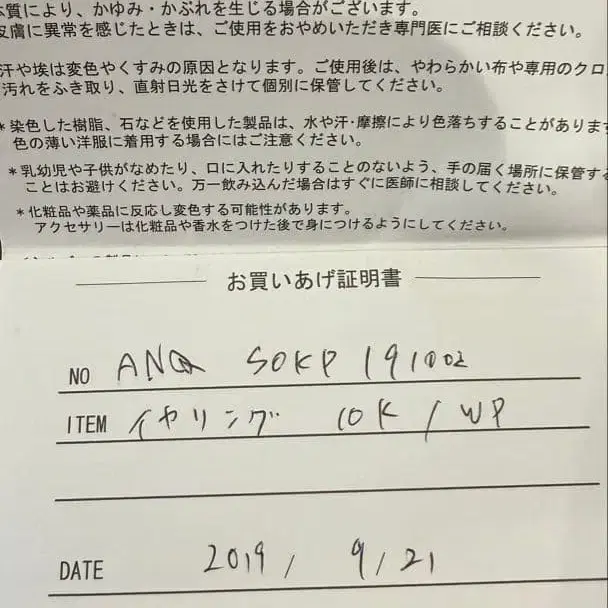 質により、かゆみ・かぶれを生じる場合がございます。
皮膚に異常を感じたときは、ご使用をおやめいただき専門医にご相談ください。
汗や埃は変色やくすみの原因となります。ご使用後は、やわらかい布や専用のクロ
汚れをふき取り、直射日光をさけて個別に保管してください。
*染色した樹脂、石などを使用した製品は、水や汗・摩擦により色落ちすることがあります
色の薄い洋服に着用する場合にはご注意ください。
*乳幼児や子供がなめたり、口に入れたりすることのないよう、手の届く場所に保管する
ことはお避けください。万一飲み込んだ場合はすぐに医師に相談してください。
*化粧品や薬品に反応し変色する可能性があります。
アクセサリーは化粧品や香水をつけた後で身につけるようにしてください。
お買いあげ証明書
NO SOKP 191002
ITEM イヤリング 10K / WP
DATE 2019 / 9 / 21